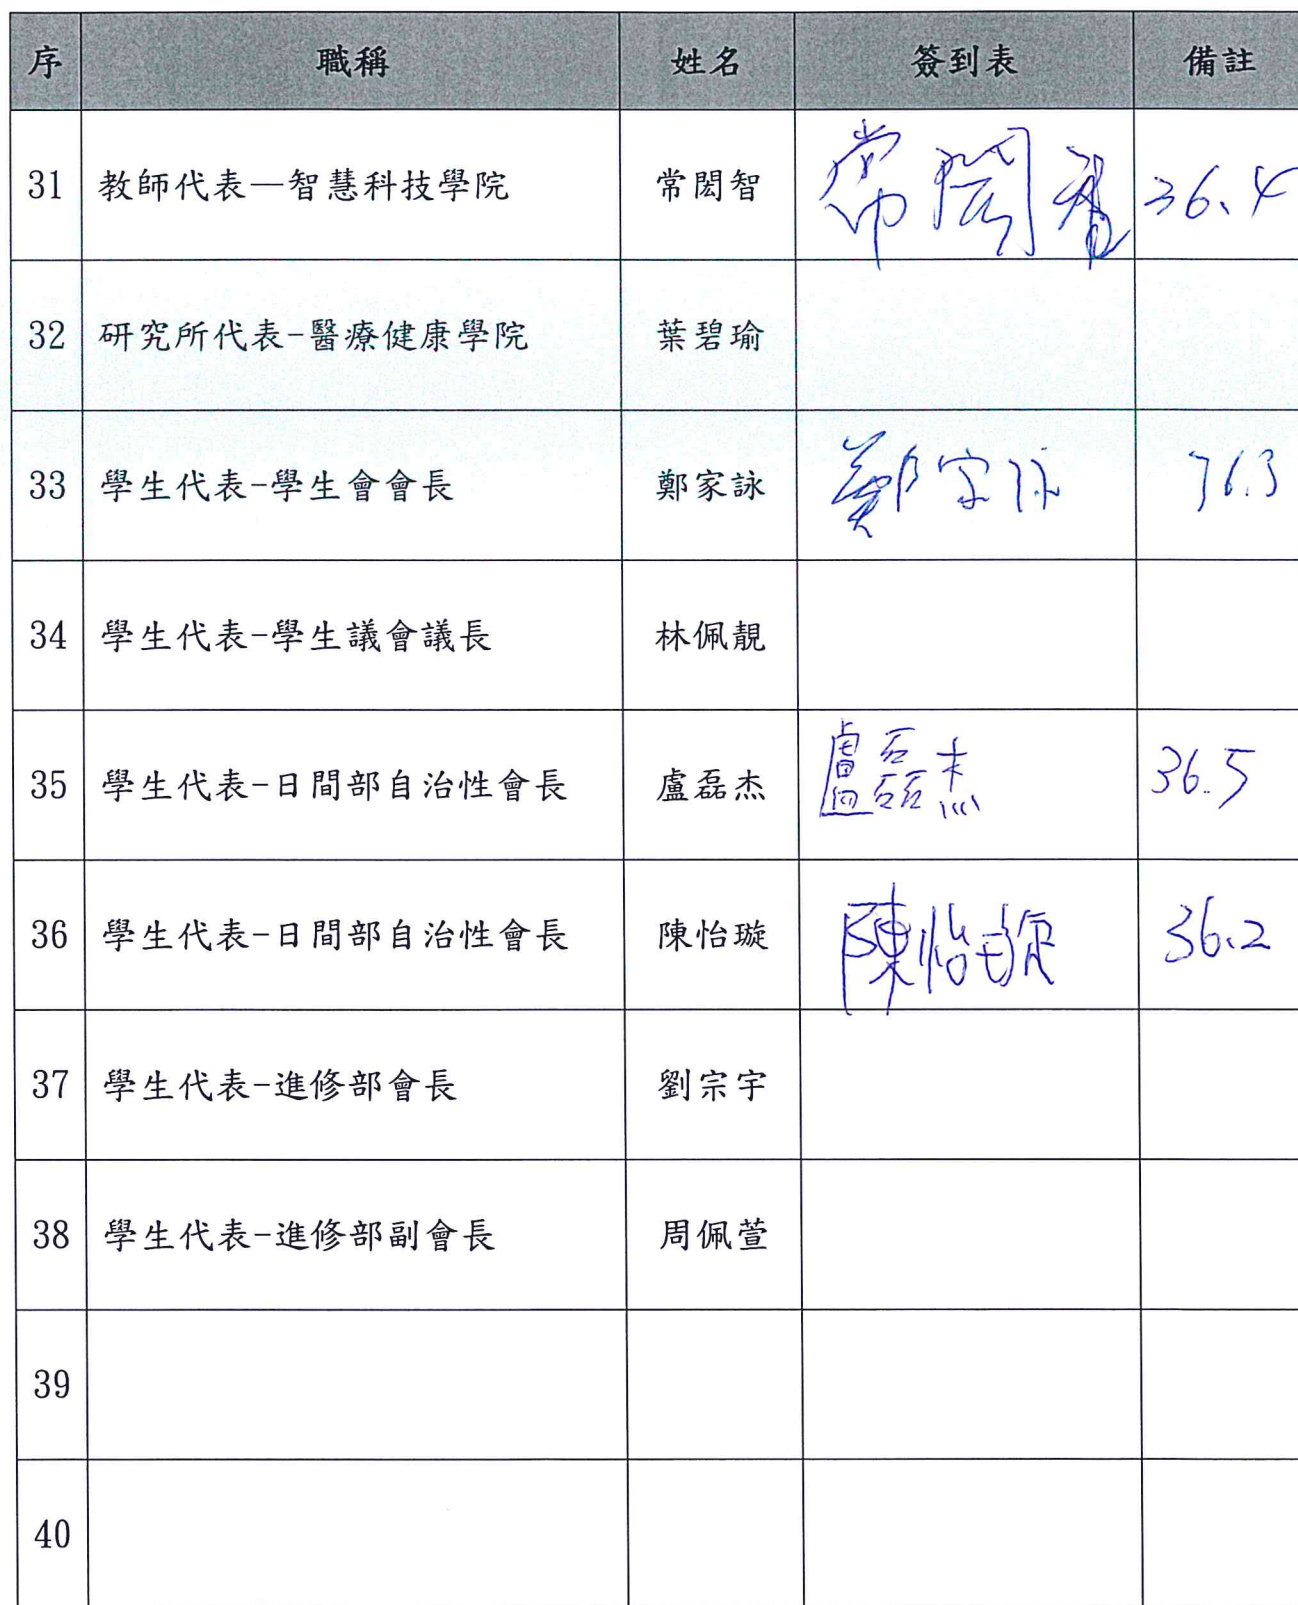 序 職稱 姓名 簽到表 備註
31 教師代表—智慧科技學院 常閎智 常閎智 36.4
32 研究所代表-醫療健康學院 葉碧瑜
33 學生代表-學生會會長 鄭家詠 鄭家詠 36.3
34 學生代表-學生議會議長 林佩靚
35 學生代表-日間部自治性會長 盧磊杰 盧磊杰 36.5
36 學生代表-日間部自治性會長 陳怡璇 陳怡璇 36.2
37 學生代表-進修部會長 劉宗宇
38 學生代表-進修部副會長 周佩萱
39
40